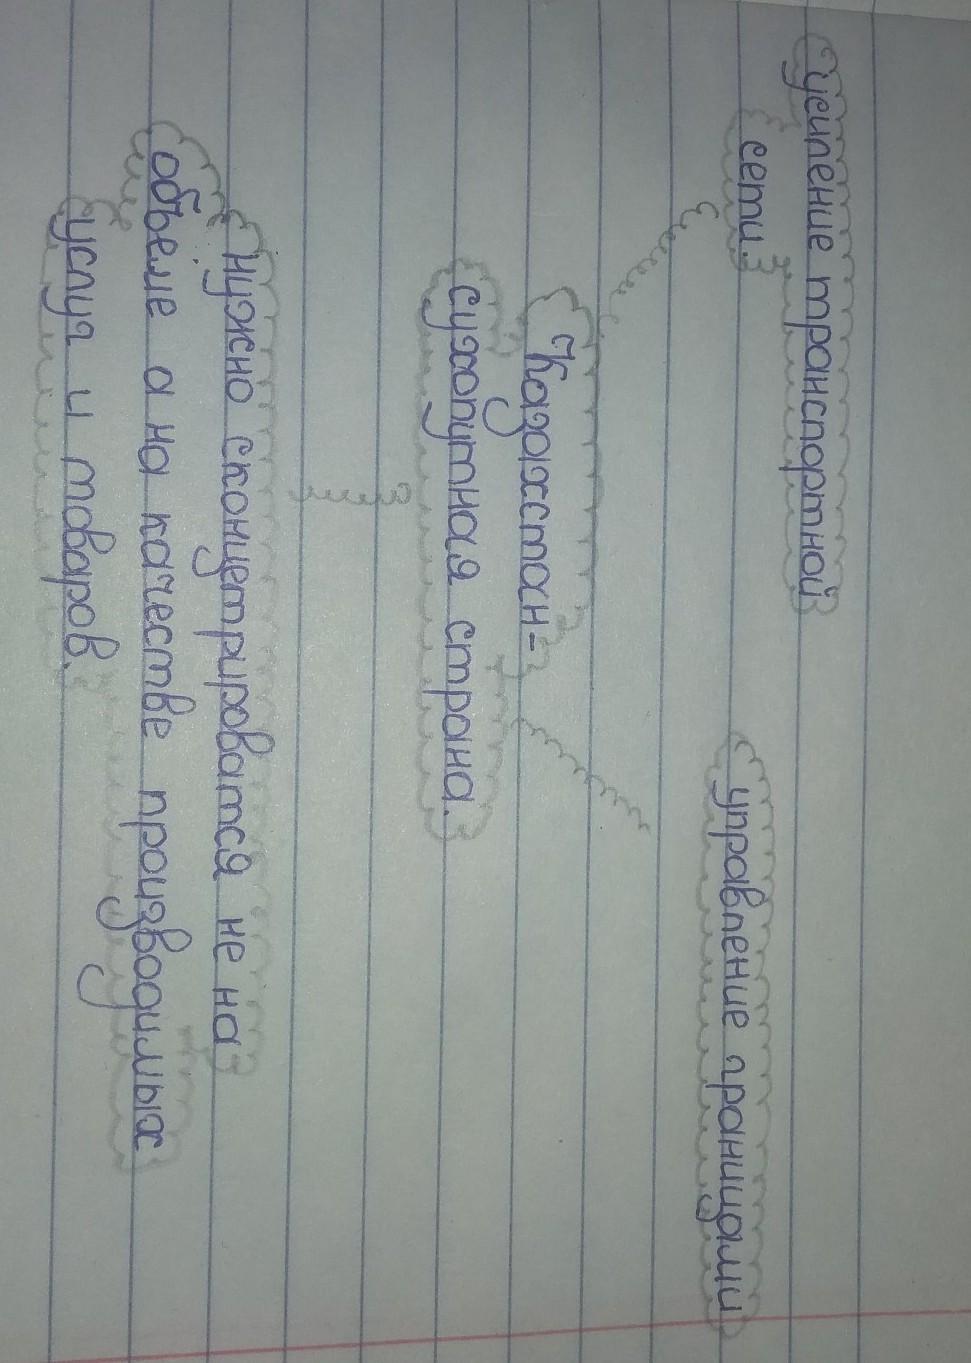 усиление транспортной
сети.
управление границами
Казахстан-
сухопутная страна.
нужно сконцетрироватся не на
объёме а на качестве производимых
услуг и товаров.